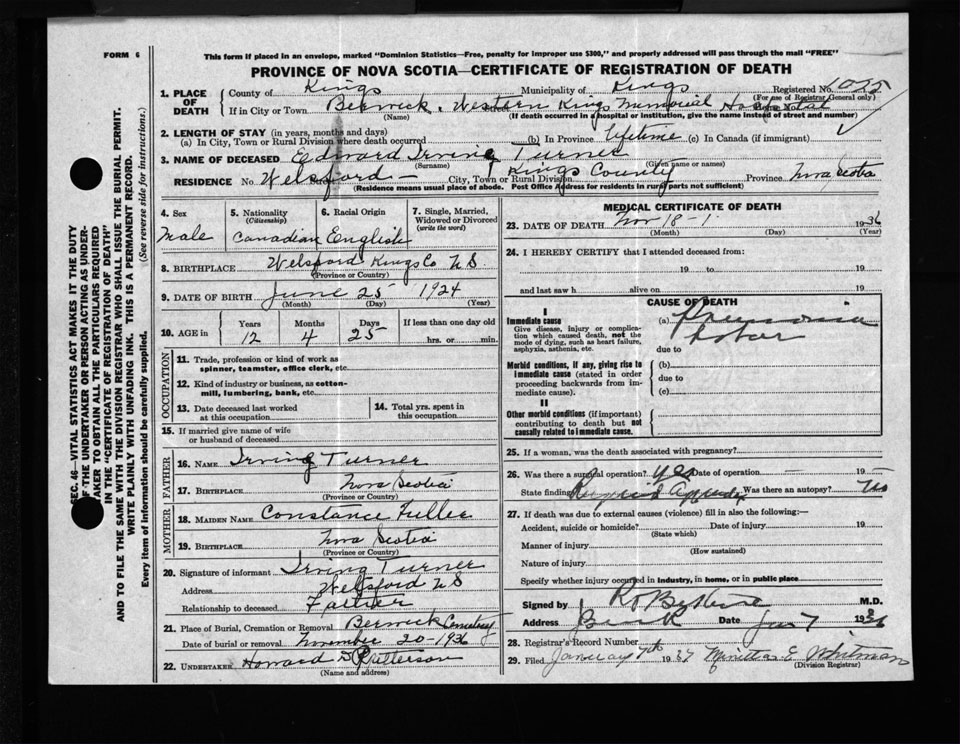 FORM 6
This form if placed in an envelope, marked "Dominion Statistics—Free, penalty for improper use $300," and properly addressed will pass through the mail "FREE"
PROVINCE OF NOVA SCOTIA—CERTIFICATE OF REGISTRATION OF DEATH
SEC. 46—VITAL STATISTICS ACT MAKES IT THE DUTY
OF THE UNDERTAKER OR PERSON ACTING AS UNDER-
TAKER TO OBTAIN ALL THE PARTICULARS REQUIRED
IN THE "CERTIFICATE OF REGISTRATION OF DEATH"
AND TO FILE THE SAME WITH THE DIVISION REGISTRAR WHO SHALL ISSUE THE BURIAL PERMIT.
WRITE PLAINLY WITH UNFADING INK. THIS IS A PERMANENT RECORD.
Every item of information should be carefully supplied. (See reverse side for instructions.)
1. PLACE OF DEATH County of Kings Municipality of Kings Registered No. 1025
(For use of Registrar General only)
If in City or Town Berwick, Western Kings Memorial Hospital
(Name) (If death occurred in a hospital or institution, give the name instead of street and number)
2. LENGTH OF STAY (in years, months and days)
(a) In City, Town or Rural Division where death occurred (b) In Province Lifetime (c) In Canada (if immigrant)
3. NAME OF DECEASED Edward Irving Turner
(Surname) (Given name or names)
RESIDENCE No. Welsford — City, Town or Rural Division Kings County Province Nova Scotia
(Residence means usual place of abode. Post Office Address for residents in rural parts not sufficient)
4. Sex 5. Nationality (Citizenship) 6. Racial Origin 7. Single, Married, Widowed or Divorced (write the word)
Male Canadian English
8. BIRTHPLACE Welsford Kings Co N S
(Province or Country)
9. DATE OF BIRTH June 25 1924
(Month) (Day) (Year)
10. AGE in Years Months Days If less than one day old
12 4 25 hrs. or min.
OCCUPATION
11. Trade, profession or kind of work as spinner, teamster, office clerk, etc.
12. Kind of industry or business, as cotton-mill, lumbering, bank, etc.
13. Date deceased last worked at this occupation 14. Total yrs. spent in this occupation
15. If married give name of wife or husband of deceased
FATHER
16. Name Irving Turner
17. Birthplace Nova Scotia
(Province or Country)
MOTHER
18. Maiden Name Constance
19. Birthplace Nova Scotia
(Province or Country)
20. Signature of informant Irving Turner
Address Welsford N S
Relationship to deceased Father
21. Place of Burial, Cremation or Removal Berwick Cemetery
Date of burial or removal November 20-1936
22. UNDERTAKER Howard
(Name and address)
MEDICAL CERTIFICATE OF DEATH
23. DATE OF DEATH Nov 18 1936
(Month) (Day) (Year)
24. I HEREBY CERTIFY that I attended deceased from:
19 to 19
and last saw h alive on 19
CAUSE OF DEATH
I
Immediate cause
Give disease, injury or complication which caused death, not the mode of dying, such as heart failure, asphyxia, asthenia, etc.
(a) Pneumonia
Lobar
due to
Morbid conditions, if any, giving rise to immediate cause (stated in order proceeding backwards from immediate cause).
(b)
due to
(c)
II
Other morbid conditions (if important) contributing to death but not causally related to immediate cause.
25. If a woman, was the death associated with pregnancy?
26. Was there a surgical operation? yes Date of operation 19
State finding Was there an autopsy? No
27. If death was due to external causes (violence) fill in also the following:—
Accident, suicide or homicide? Date of injury 19
(State which)
Manner of injury
(How sustained)
Nature of injury
Specify whether injury occurred in industry, in home, or in public place
Signed by M.D.
Address Date Jan 7 19
28. Registrar's Record Number
29. Filed January 7th 1937 E. Whitman
(Division Registrar)